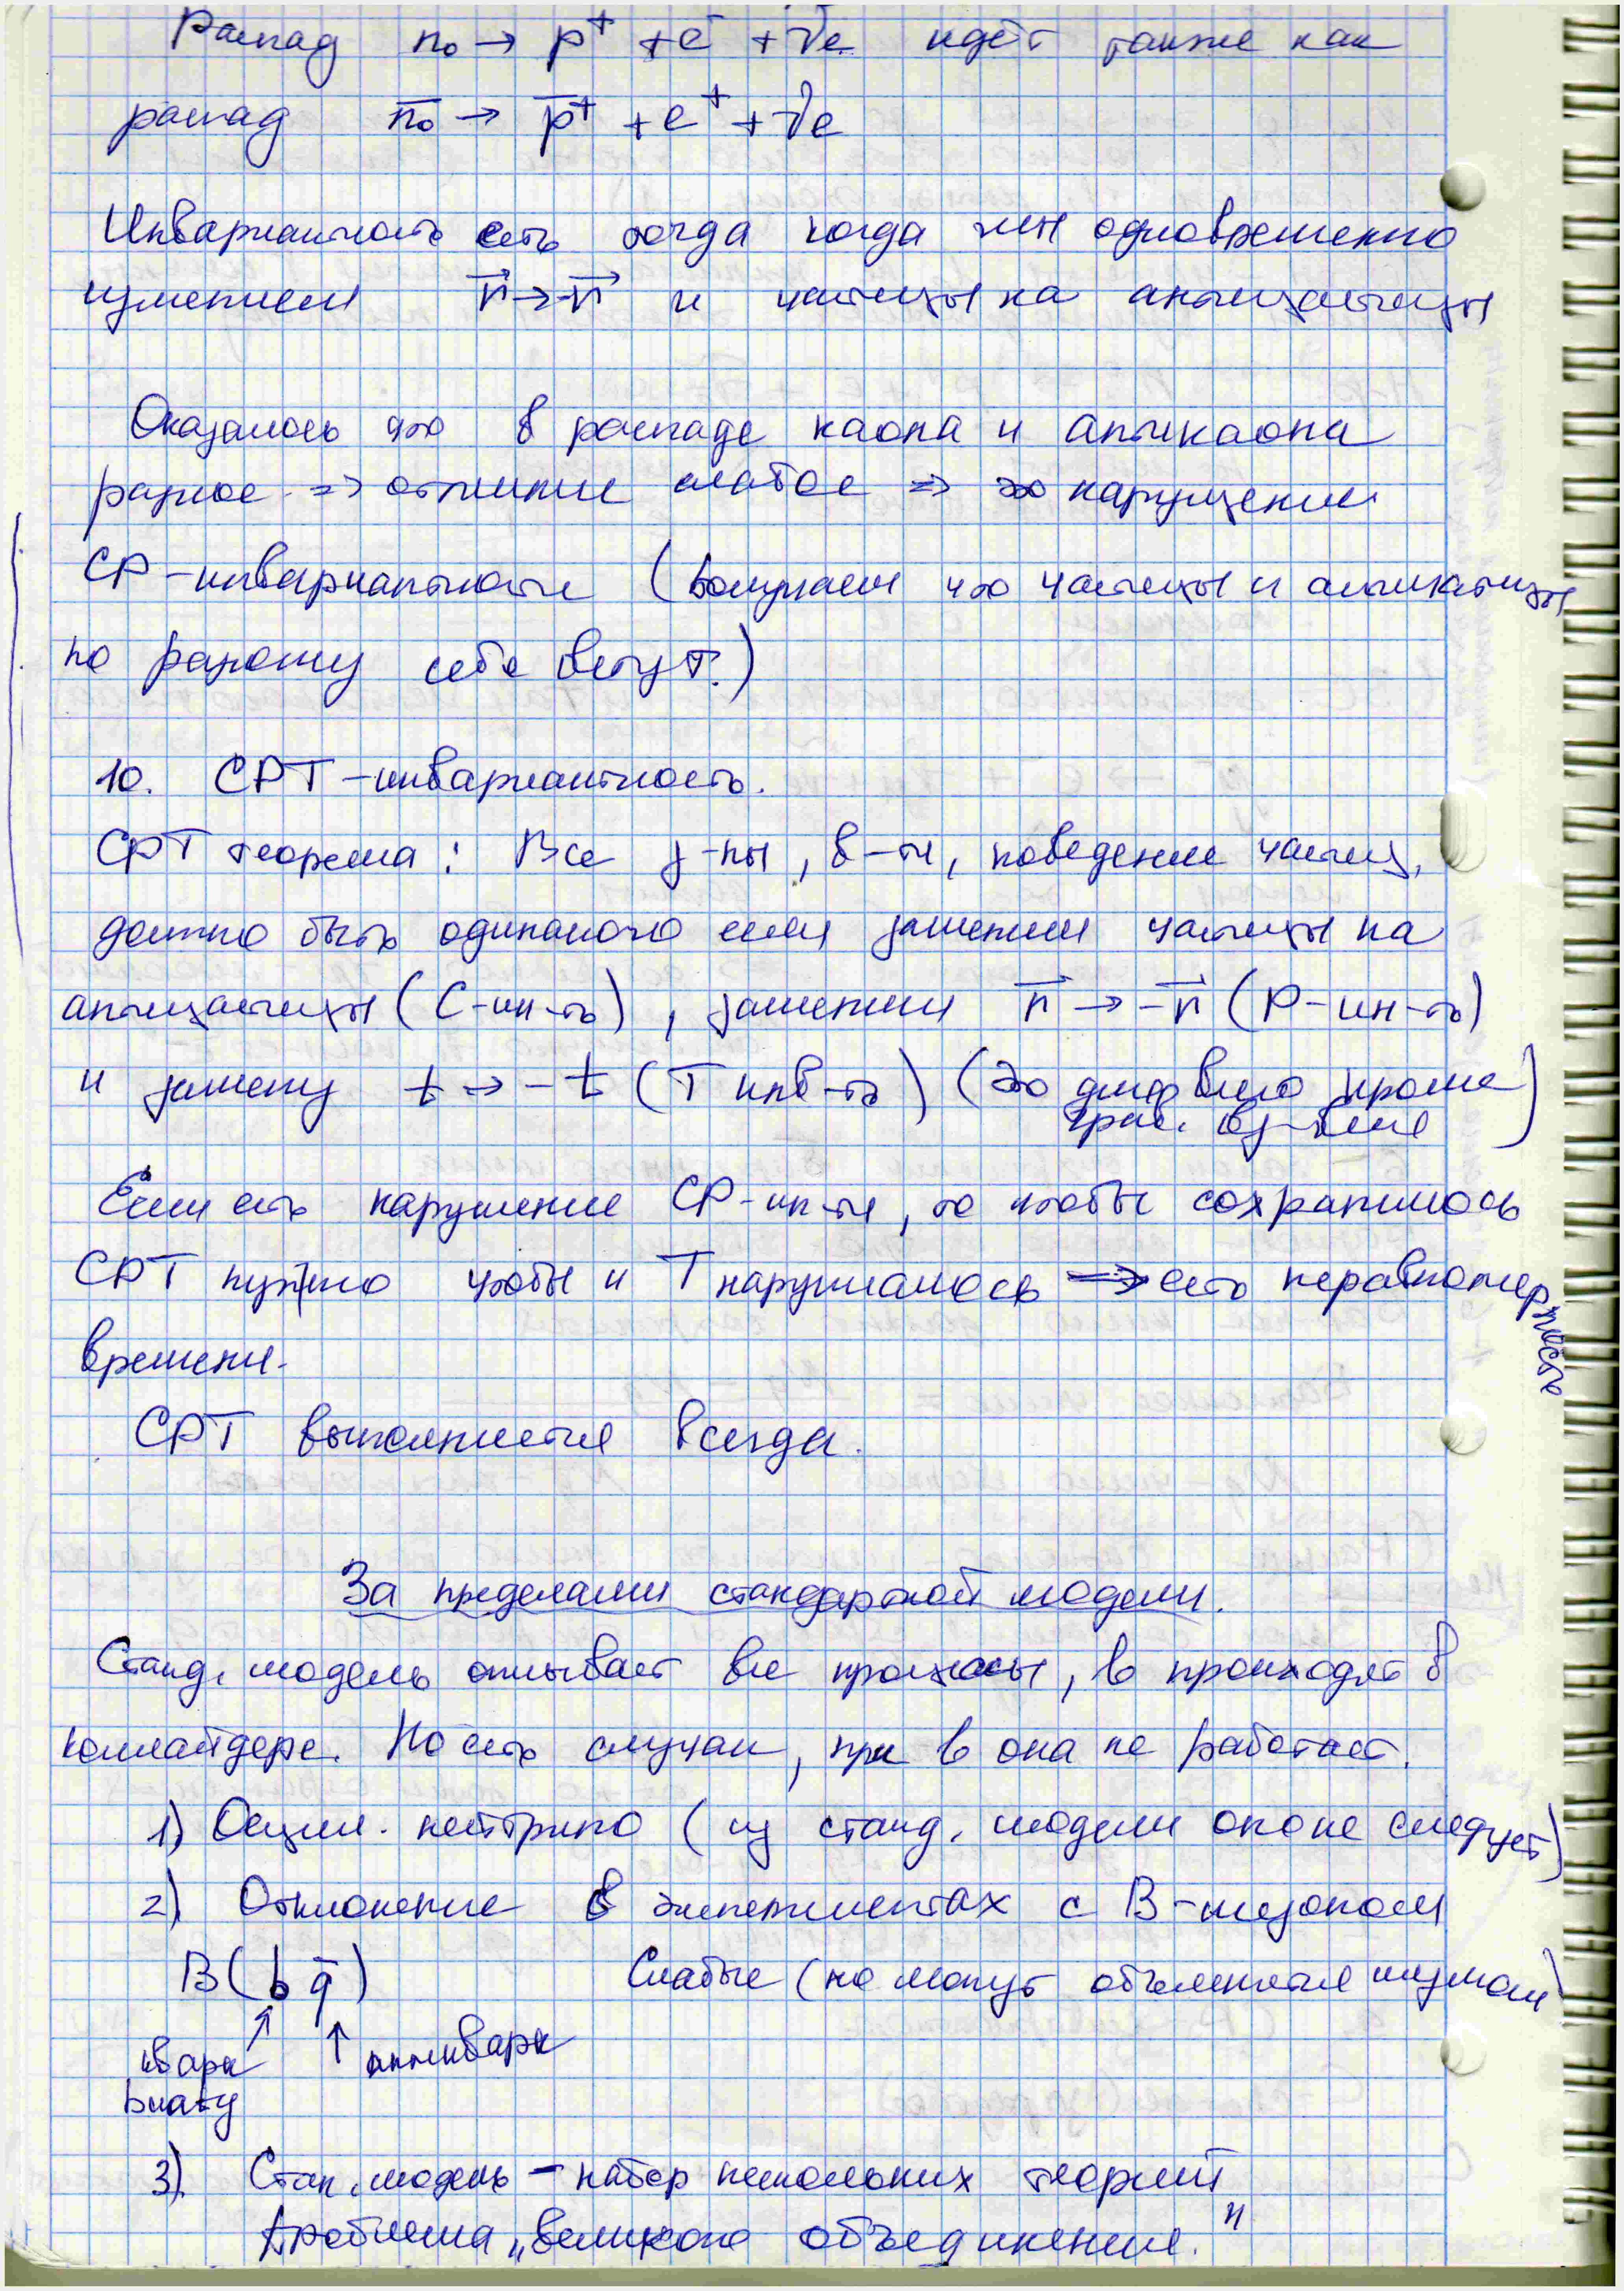 Распад n₀ → p⁺ + e⁻ + ν̃e идёт также как
распад n̅₀ → p̅⁺ + e⁺ + νe
Инвариантность есть тогда когда мы одновременно
изменяем r⃗ → -r⃗ и частицы на античастицы
Оказалось что в распаде каона и антикаона
разное => отличие слабое => это нарушение
СР-инвариантности (получаем что частицы и античастицы
по разному себя ведут.)
10. СРТ-инвариантность.
СРТ теорема: Все з-ны, в-ия, поведение частиц,
должно быть одинаково если заменим частицы на
античастицы (С-ин-ть), заменим r⃗ → -r⃗ (Р-ин-ть)
и замену t → -t (Т инв-ть) (это для всего кроме
грав. вз-вия)
Если есть нарушение СР-ин-ти, то чтобы сохранилось
СРТ нужно чтобы и Т нарушалось => есть неравномерность
времени.
СРТ выполняется всегда.
За пределами стандартной модели.
Станд. модель описывает все процессы, в происходят в
коллайдере. Но есть случаи, при в она не работает.
1) Осцил. нейтрино (из станд. модели оно не следует)
2) Отклонение в экспериментах с В-мезоном
B(b q̄) Слабые (но могут объясняться шумом)
кварк антикварк
bиаty
3) Стан. модель - набор нескольких теорий
Проблема „великого объединения."